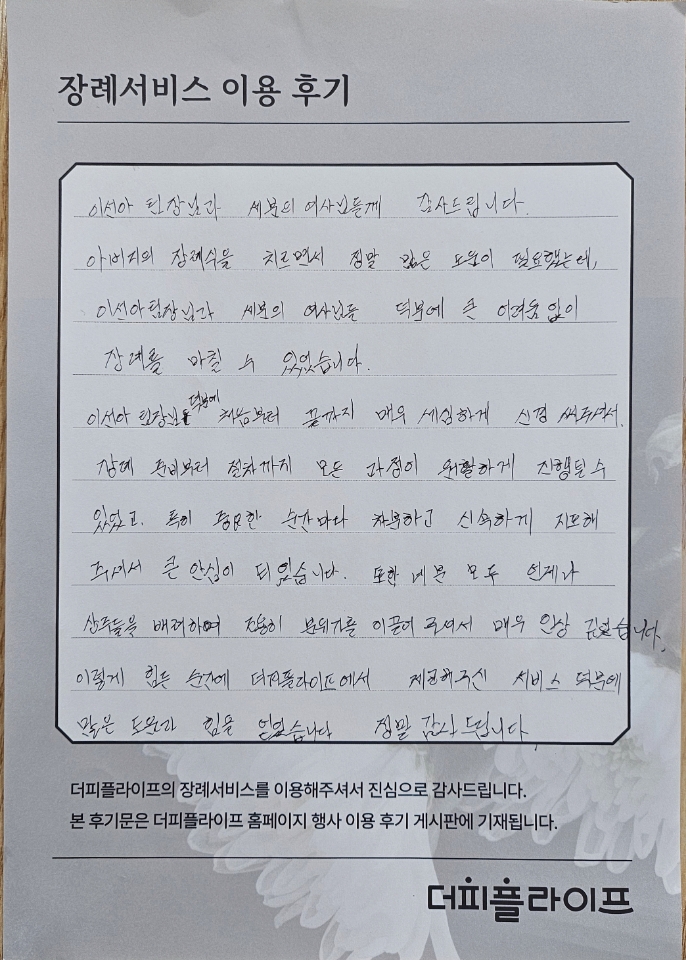 장례서비스 이용 후기
이선아 팀장님과 세분의 여사님들께 감사드립니다.
아버지의 장례식을 치르면서 정말 많은 도움이 필요했는데,
이선아팀장님과 세분의 여사님들 덕분에 큰 어려움 없이
장례를 마칠 수 있었습니다.
이선아 팀장님 덕분에 처음부터 끝까지 매우 세심하게 신경 써주셔서.
장례 준비부터 절차까지 모든 과정이 원활하게 진행될 수
있었고. 특히 중요한 순간마다 차분하고 신속하게 지도해
주셔서 큰 안심이 되었습니다. 또한 네분 모두 언제나
상주들을 배려하며 조용히 분위기를 이끌어 주셔서 매우 인상 깊었습니다.
이렇게 힘든 순간에 더피플라이프에서 제공해주신 서비스 덕분에
많은 도움과 힘을 얻었습니다 정말 감사드립니다.
더피플라이프의 장례서비스를 이용해주셔서 진심으로 감사드립니다.
본 후기문은 더피플라이프 홈페이지 행사 이용 후기 게시판에 기재됩니다.
더피플라이프